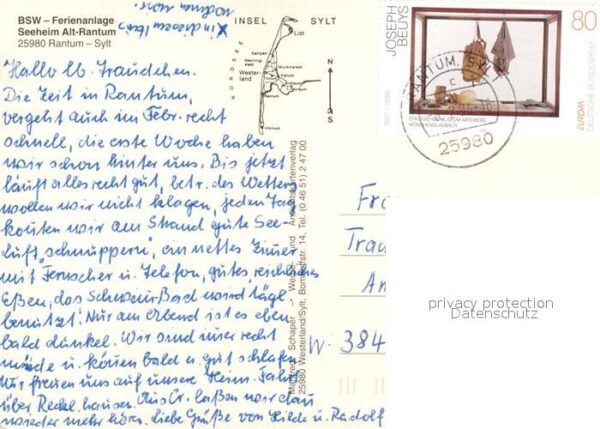 BSW – Ferienanlage
Seeheim Alt-Rantum
25980 Rantum – Sylt
x in diesem Haus
wohnen wir.
INSEL SYLT
NORDSEE
List
Kampen
Wenning-
stedt
Wester-
land
Rantum
Hörnum
N
S
Hallo lb. Traudchen.
Die Zeit in Rantum,
vergeht auch im Febr. recht
schnell, die erste Woche haben
wir schon hinter uns. Bis jetzt
läuft alles recht gut, betr. des Wetters
wollen wir nicht klagen, jeden Tag
konten wir am Strand gute See-
luft "schnuppern", ein nettes Zimer
mit Fernseher u. Telefon, gutes reichliches
Eßen, das Schwimm-Bad wird tägl.
benutzt! Nur am Abend ist es eben
bald dunkel. Wir sind imer recht
müde u. könen bald u. gut schlafen
Wir freuen uns auf unsere Heim-Fahrt
über Reckl.hausen. Aus Cr. laßen wir dan
wieder mehr hören. Liebe Grüße von Hilde u. Rudolf
Manfred Schaper Werbe- und Ansichtskartenverlag
25980 Westerland/Sylt, Bomhoffstr. 14, Tel. (0 46 51) 2 47 00
JOSEPH
BEUYS
1921 - 1986
80
DEUTSCHE BUNDESPOST
EUROPA
STÄDTISCHES MUSEUM ABTEIBERG
MÖNCHENGLADBACH
RANTUM, SYLT
c
25980
Fr
Trau
An
W. 384
privacy protection
Datenschutz